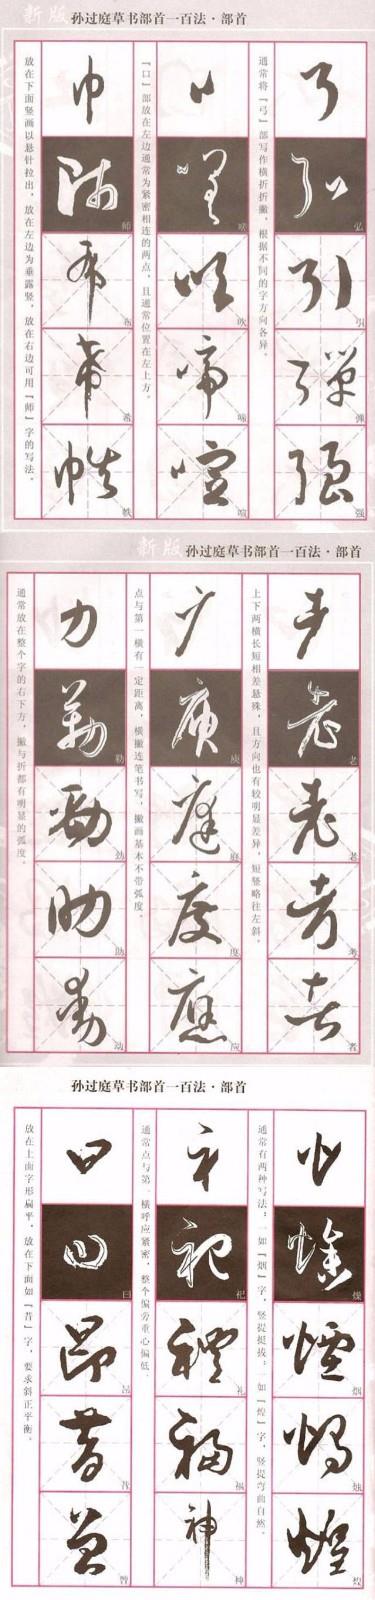 新版 孙过庭草书部首一百法·部首
通常将「弓」部写作横折折撇，根据不同的字方向各异。
弘
引
弹
强
「口」部放在左边通常为紧密相连的两点，且通常位置在左上方。
吹
啼
喧
放在下面竖画以悬针拉出，放在左边为垂露竖，放在右边可用「师」字的写法。
师
布
希
帙
新版 孙过庭草书部首一百法·部首
上下两横长短相差悬殊，且方向也有较明显差异，短竖略往左斜。
老
老
考
者
点与第一横有一定距离，横撇连笔书写，撇画基本不带弧度。
庚
庭
度
应
通常放在整个字的右下方，撇与折都有明显的弧度。
力
勒
劲
助
动
孙过庭草书部首一百法·部首
通常有两种写法：一如「烟」字，竖提挺拔；一如「煌」字，竖提弯曲自然。
燥
烟
烛
煌
通常点与第一横呼应紧密，整个偏旁重心偏低。
祀
礼
福
神
放在上面字形扁平，放在下面如「昔」字，要求斜正平衡。
曰
昂
昔
智